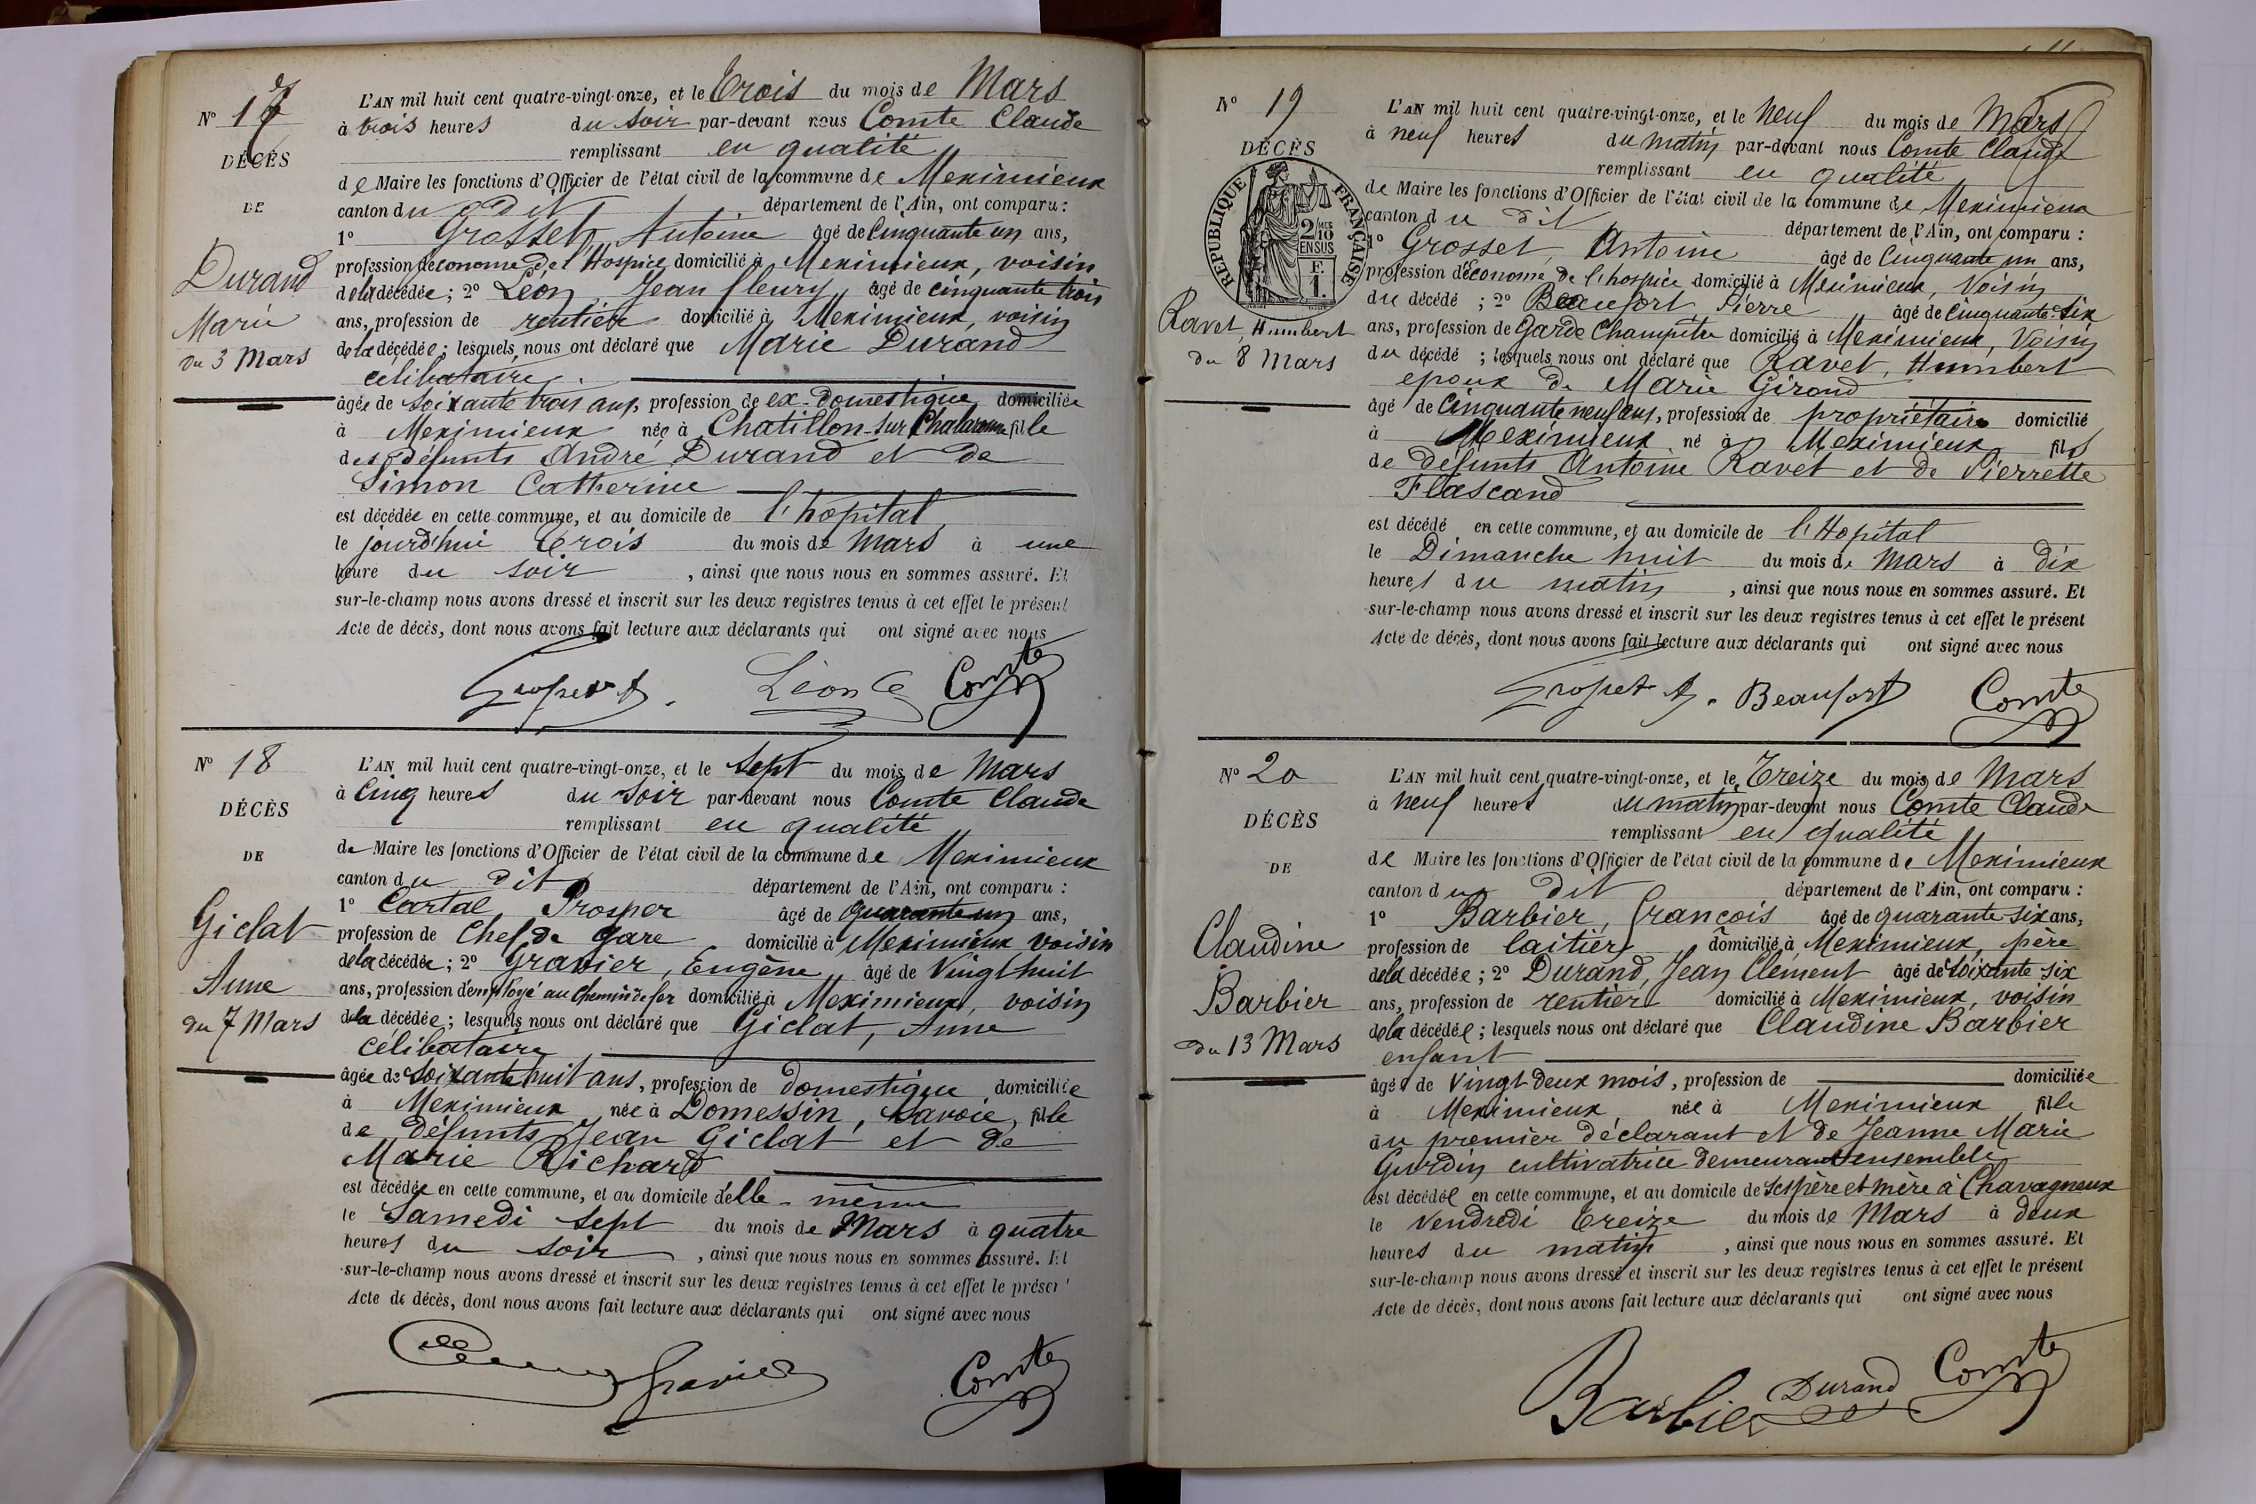 Nº 17
DÉCÈS
DE
Durand
Marie
Du 3 Mars
L'AN mil huit cent quatre-vingt-onze, et le Trois du mois de Mars
à trois heures du soir par-devant nous Comte Claude
remplissant en qualité
de Maire les fonctions d'Officier de l'état civil de la commune de Meximieux
canton du dit département de l'Ain, ont comparu :
1º Grosset, Antoine âgé de Cinquante un ans,
profession d'économe de l'Hospice domicilié à Meximieux, voisin
de la décédée ; 2º Léon, Jean fleury âgé de cinquante trois
ans, profession de rentier domicilié à Meximieux, voisin
de la décédée ; lesquels nous ont déclaré que Marie Durand
célibataire
âgée de soixante trois ans, profession de ex-domestique domiciliée
à Meximieux née à Chatillon-sur Chalaronne fille
des défunts André Durand et de
Simon Catherine
est décédée en cette commune, et au domicile de l'hopital
le jourd'hui Trois du mois de Mars à une
heure du soir, ainsi que nous nous en sommes assuré. Et
sur-le-champ nous avons dressé et inscrit sur les deux registres tenus à cet effet le présent
Acte de décès, dont nous avons fait lecture aux déclarants qui ont signé avec nous
Grosset A. Léon Comte
Nº 18
DÉCÈS
DE
Giclat
Anne
du 7 Mars
L'AN mil huit cent quatre-vingt-onze, et le Sept du mois de Mars
à Cinq heures du Soir par-devant nous Comte Claude
remplissant en qualité
de Maire les fonctions d'Officier de l'état civil de la commune de Meximieux
canton du dit département de l'Ain, ont comparu :
1º Cartal Prosper âgé de quarante un ans,
profession de Chef de gare domicilié à Meximieux voisin
de la décédée ; 2º Gravier, Eugène âgé de Vingt huit
ans, profession d'employé au Chemin de fer domicilié à Meximieux, voisin
de la décédée ; lesquels nous ont déclaré que Giclat, Anne
célibataire
âgée de Soixante huit ans, profession de domestique domiciliée
à Meximieux née à Domessin, Savoie fille
de défunts Jean Giclat et de
Marie Richard
est décédée en cette commune, et au domicile d'elle-même
le Samedi Sept du mois de Mars à quatre
heures du soir, ainsi que nous nous en sommes assuré. Et
sur-le-champ nous avons dressé et inscrit sur les deux registres tenus à cet effet le présent
Acte de décès, dont nous avons fait lecture aux déclarants qui ont signé avec nous
Gravier Comte
Nº 19
DÉCÈS
RÉPUBLIQUE FRANÇAISE
2/10 EN SUS
F. 1.
Ravet, Humbert
du 8 Mars
L'AN mil huit cent quatre-vingt-onze, et le Neuf du mois de Mars
à neuf heures du matin par-devant nous Comte Claude
remplissant en qualité
de Maire les fonctions d'Officier de l'état civil de la commune de Meximieux
canton du dit département de l'Ain, ont comparu :
1º Grosset, Antoine âgé de Cinquante un ans,
profession d'économe de l'hospice domicilié à Meximieux, Voisin
du décédé ; 2º Beaufort Pierre âgé de Cinquante six
ans, profession de Garde Champêtre domicilié à Meximieux, Voisin
du décédé ; lesquels nous ont déclaré que Ravet, Humbert
epoux de Marie Giroud
âgé de Cinquante neuf ans, profession de propriétaire domicilié
à Meximieux né à Meximieux fils
de défunts Antoine Ravet et de Pierrette
Flascand
est décédé en cette commune, et au domicile de l'Hopital
le Dimanche huit du mois de Mars à dix
heures du matin, ainsi que nous nous en sommes assuré. Et
sur-le-champ nous avons dressé et inscrit sur les deux registres tenus à cet effet le présent
Acte de décès, dont nous avons fait lecture aux déclarants qui ont signé avec nous
Grosset A. Beaufort Comte
Nº 20
DÉCÈS
DE
Claudine
Barbier
du 13 Mars
L'AN mil huit cent quatre-vingt-onze, et le Treize du mois de Mars
à neuf heures du matin par-devant nous Comte Claude
remplissant en qualité
de Maire les fonctions d'Officier de l'état civil de la commune de Meximieux
canton du dit département de l'Ain, ont comparu :
1º Barbier, François âgé de quarante six ans,
profession de laitier domicilié à Meximieux, père
de la décédée ; 2º Durand, Jean Clément âgé de soixante six
ans, profession de rentier domicilié à Meximieux, voisin
de la décédée ; lesquels nous ont déclaré que Claudine Barbier
enfant
âgée de Vingt deux mois, profession de domiciliée
à Meximieux née à Meximieux fille
du premier déclarant et de Jeanne Marie
Gurdin cultivatrice demeurant ensemble
est décédée en cette commune, et au domicile de Ses père et mère à Chavagneux
le Vendredi treize du mois de Mars à deux
heures du matin, ainsi que nous nous en sommes assuré. Et
sur-le-champ nous avons dressé et inscrit sur les deux registres tenus à cet effet le présent
Acte de décès, dont nous avons fait lecture aux déclarants qui ont signé avec nous
Barbier Durand Comte